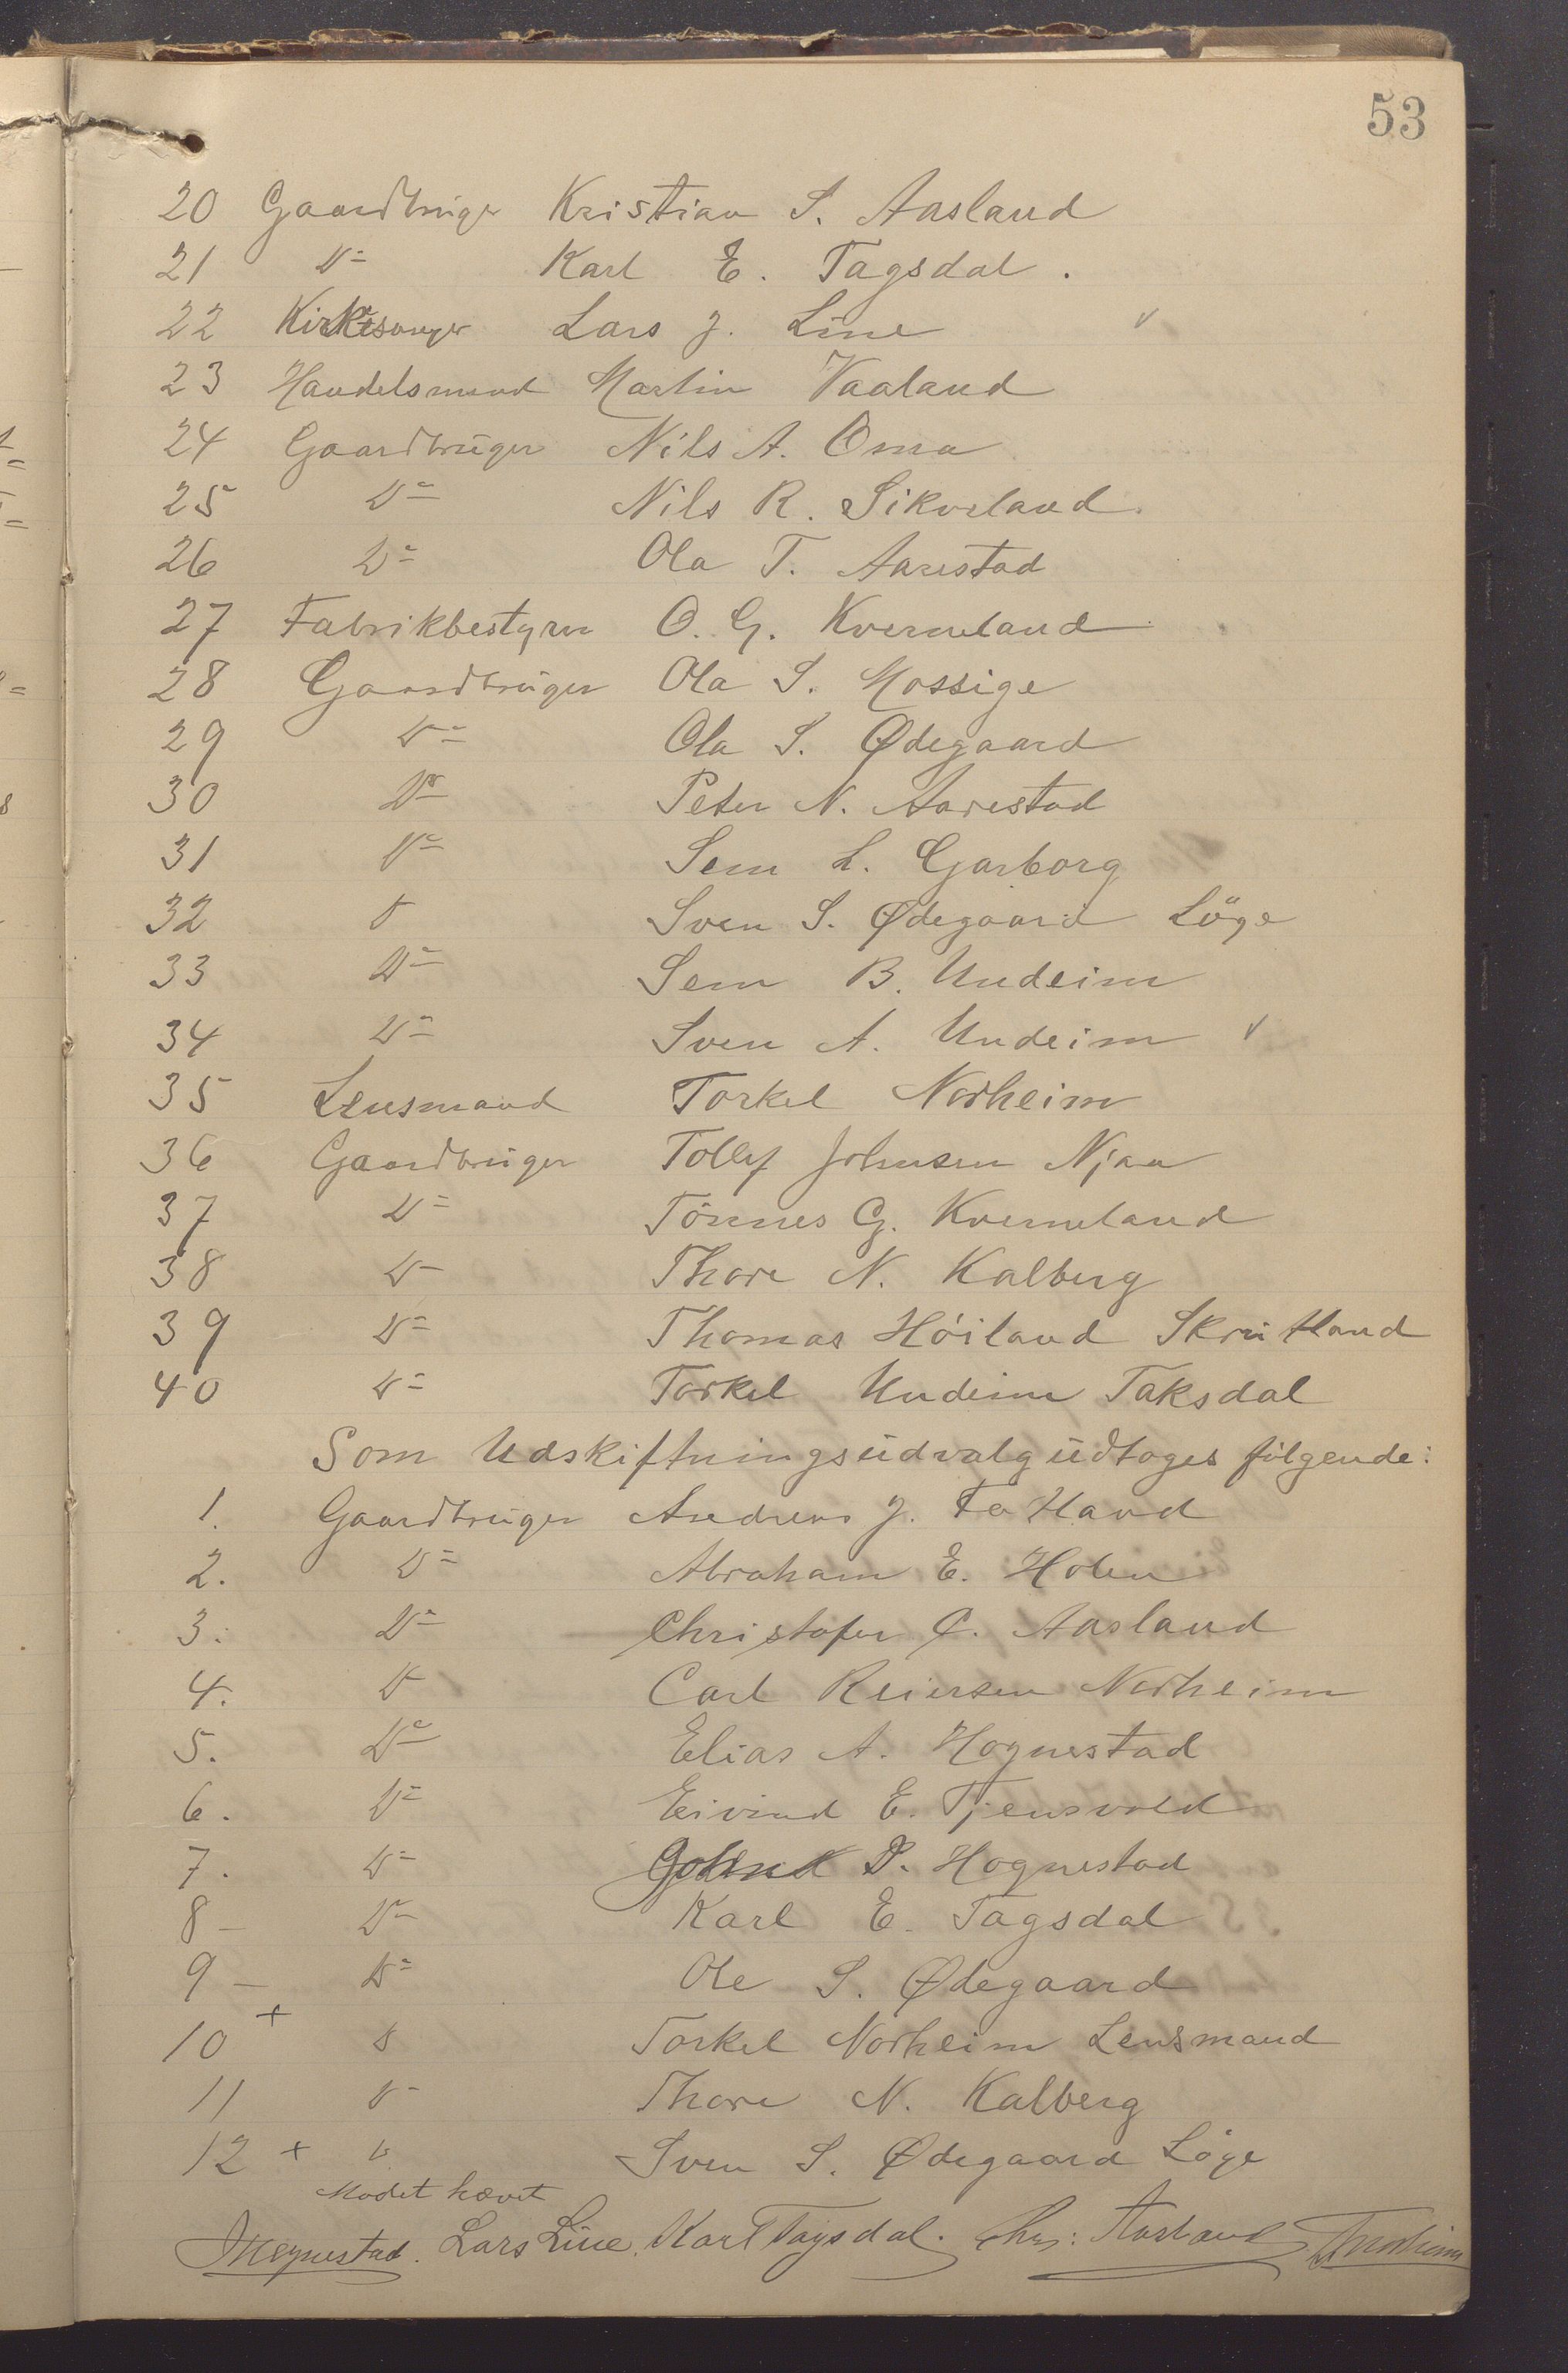 53
20 Gaardbruger Kristian S. Aasland
21 Do Karl E. Tagsdal.
22 Kirkesanger Lars J. Line v
23 Handelsmand Martin Vaaland
24 Gaardbrüger Nils A. Oma
25 Do Nils R. Sikveland.
26 Do Ola T. Aarestad
27 Fabrikbestyrer O. G. Kverneland
28 Gaardbrüger Ola S. Mossige
29 Do Ola S. Ødegaard
30 Do Peter N. Aarestad
31 Do Sem L. Garborg
32 D Sven S. Ødegaard Löge
33 Do Sem B. Undeim
34 Do Sven A. Undeim v
35 Lensmand Torkel Norheim
36 Gaardbrüger Tollef Johnsen Njaa
37 Do Tönnes G. Kverneland
38 Do Thore N. Kalberg
39 Do Thomas Höiland Skrütland
40 Do Torkel Undeim Taksdal
Som Udskiftningsüdvalg üdtoges fölgende:
1. Gaardbrüger Andreas J. Fotland
2. Do Abraham E. Holen
3. Do Christofer C. Aasland
4. D Carl Reiersen Norheim
5. Do Elias A. Hognestad
6. Do Eivind E. Tjensvold
7. Do P. Hognestad
8 - Do Karl E. Tagsdal
9 - Do Ole S. Ødegaard
10 + D Torkel Norheim Lensmand
11 D Thore N. Kalberg
12 + D Sven S. Ødegaard Löge
Mødet hævet
Lars Line. Karl Tagsdal. Chr: Aasland